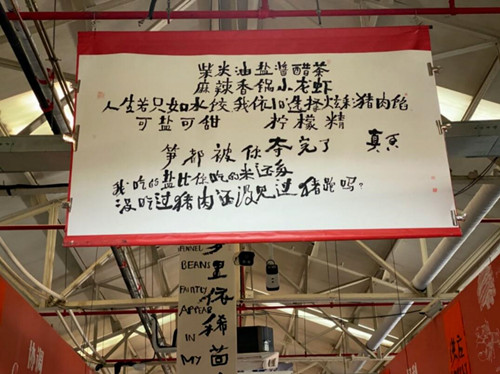 柴米油盐酱醋茶
麻辣香锅小老虾
人生若只如水饺 我依旧选择炫彩猪肉馅
可盐可甜 柠檬精
笋都被你夺完了 真员
我吃的盐比你吃的米还多
没吃过猪肉还没见过猪跑吗?
BEANS
FAINTLY
APPEAR
IN
MY
里依稀